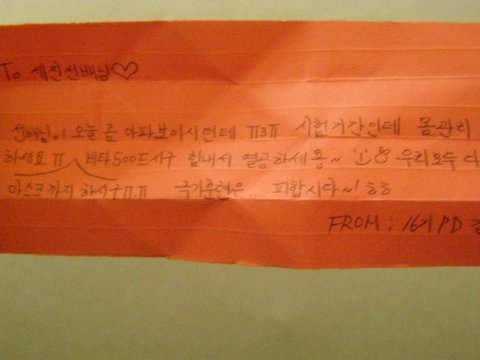 To 세진선배님♡
선배님!! 오늘 좀 아파보이시던데 ㅠ3ㅠ 시험기간인데 몸관리
하세요 ㅠ 비타500드시구 힘내서 열공하세용~ 우리모두 다
마스크까지 하시구ㅠ.ㅠ 극기훈련은.. 피합시다~! ㅎㅎ
FROM : 16기 PD